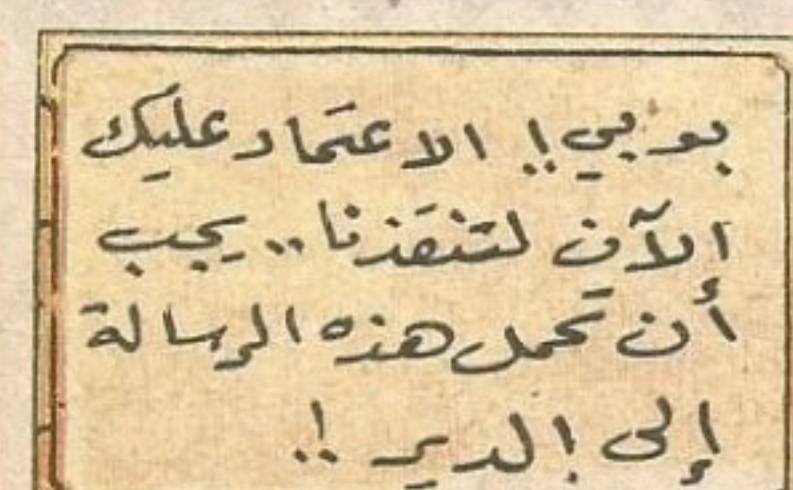 بوبي!! الاعتماد عليك
الآن لتنقذنا.. يجب
أن تحمل هذه الرسالة
إلى الدير!!